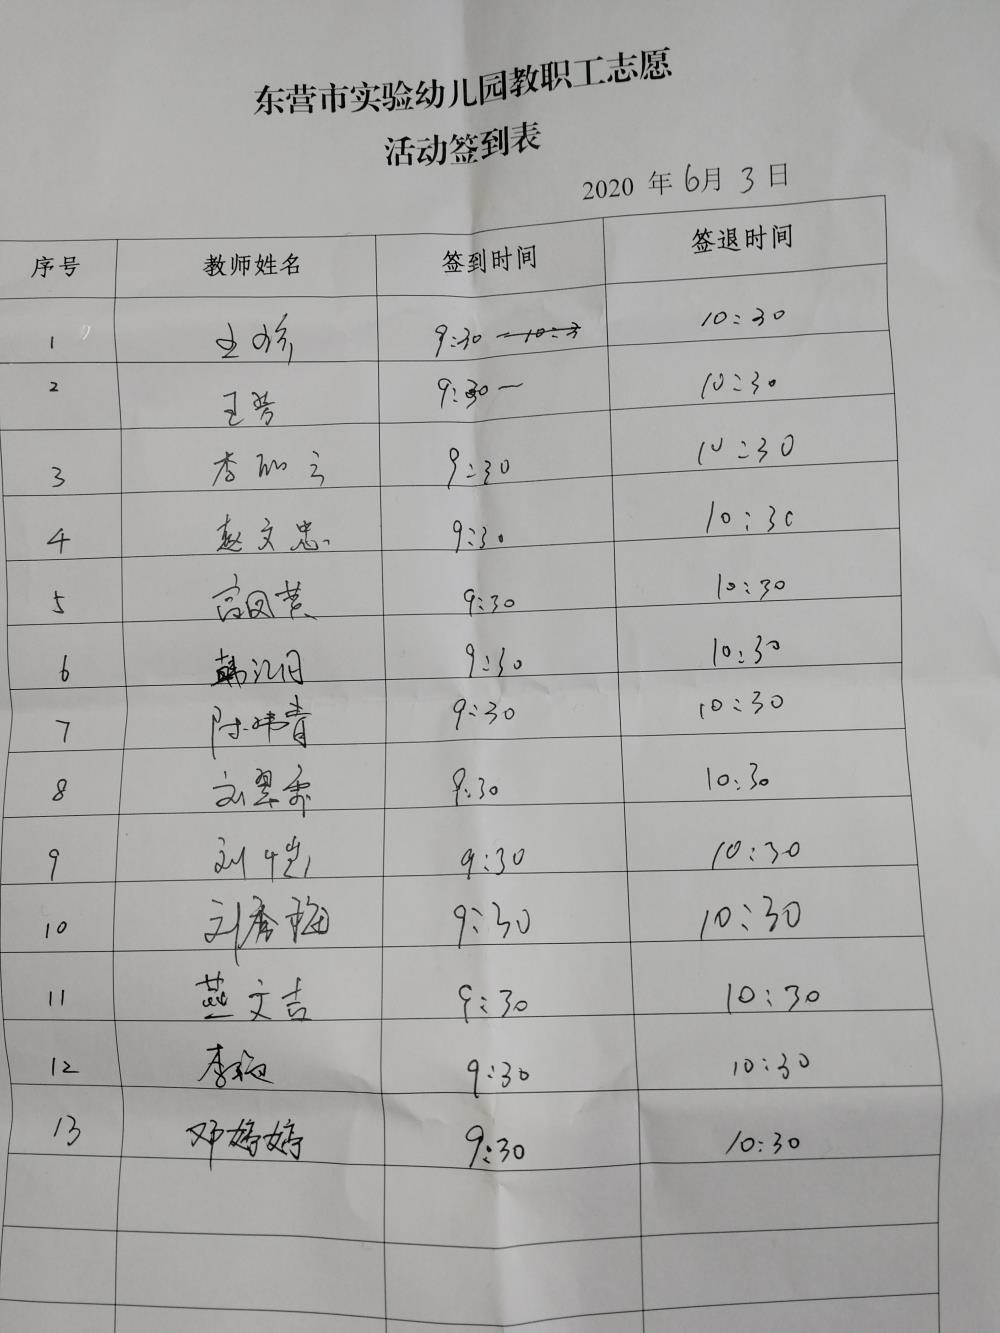 东营市实验幼儿园教职工志愿
活动签到表
2020 年 6月 3 日
序号 教师姓名 签到时间 签退时间
1 9:30 10:30
2 王 9:30— 10:30
3 李 9:30 10:30
4 赵文忠 9:30 10:30
5 9:30 10:30
6 韩 9:30 10:30
7 陈炜青 9:30 10:30
8 刘翠霏 9:30 10:30
9 刘 9:30 10:30
10 刘秀梅 9:30 10:30
11 燕文吉 9:30 10:30
12 李梅 9:30 10:30
13 邓婷婷 9:30 10:30